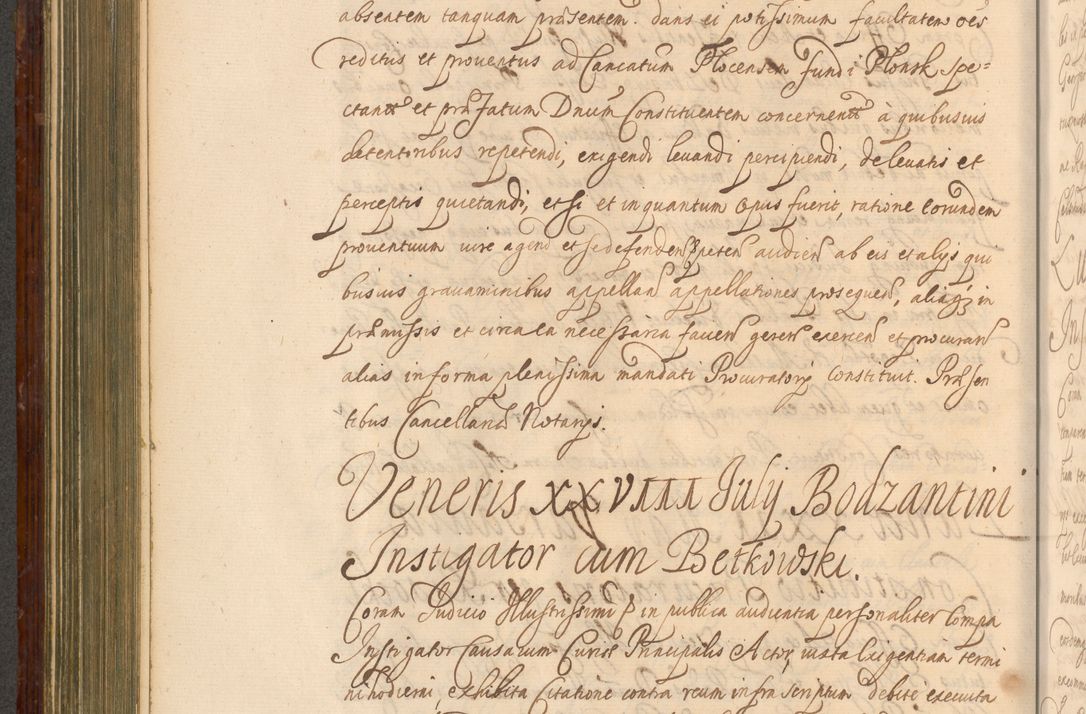 absentem tanquam præsentem. dans ei potissimum facultatem oes
reditus et prouentus ad Cancatum Plocensem fundi Plonsk spe=
ctan et præfatum Dnum Constituentem concernen à quibusuis
detentoribus repetendi, exigendi leuandi percipiendi, de leuatis et
perceptis quietandi, et si et in quantum opus fuerit, ratione eorundem
prouentuum iure agend et se defenden peten audien ab eis et alys qui
busuis grauaminibus appellan appellationes prosequen, aliaq in
præmissis et circa ea necessaria facien geren exercen et procuran
alias in forma plenissima mandati Procuratory constituit. Præsen
tibus Cancellariæ Notarys.
Veneris XXVIII July Bodzantini
Instigator cum Betkowski.
Coram Judicio Illustrissimi P in publica audientia personaliter Compa
Instigator Causarum Curiæ Principalis Actor, iuxta exigentiam termi
ni hodierni, exhibita Citatione contra reum infra scriptum debite executa